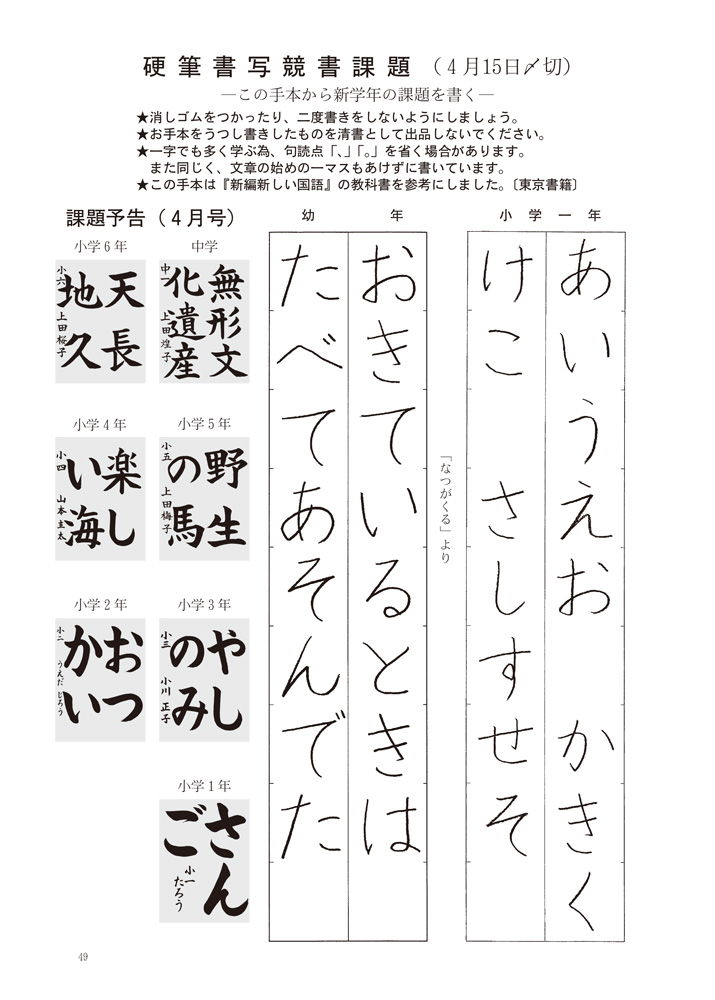 硬筆書写競書課題（４月15日〆切）
―この手本から新学年の課題を書く―
★消しゴムをつかったり、二度書きをしないようにしましょう。
★お手本をうつし書きしたものを清書として出品しないでください。
★一字でも多く学ぶ為、句読点「、」「。」を省く場合があります。
また同じく、文章の始めの一マスもあけずに書いています。
★この手本は『新編新しい国語』の教科書を参考にしました。〔東京書籍〕
小学一年
あいうえお　かきく
けこ　さしすせそ
「なつがくる」より
幼年
おきているときは
たべてあそんでた
課題予告（４月号）
中学
無形文
化遺産
中一 上田煌子
小学６年
天長
地久
小六 上田桜子
小学５年
野生
の馬
小五 上田梅子
小学４年
楽し
い海
小四 山本圭太
小学３年
やし
のみ
小三 小川正子
小学２年
おつ
かい
小二 うえだじろう
小学１年
さん
ご
小一 たろう
49